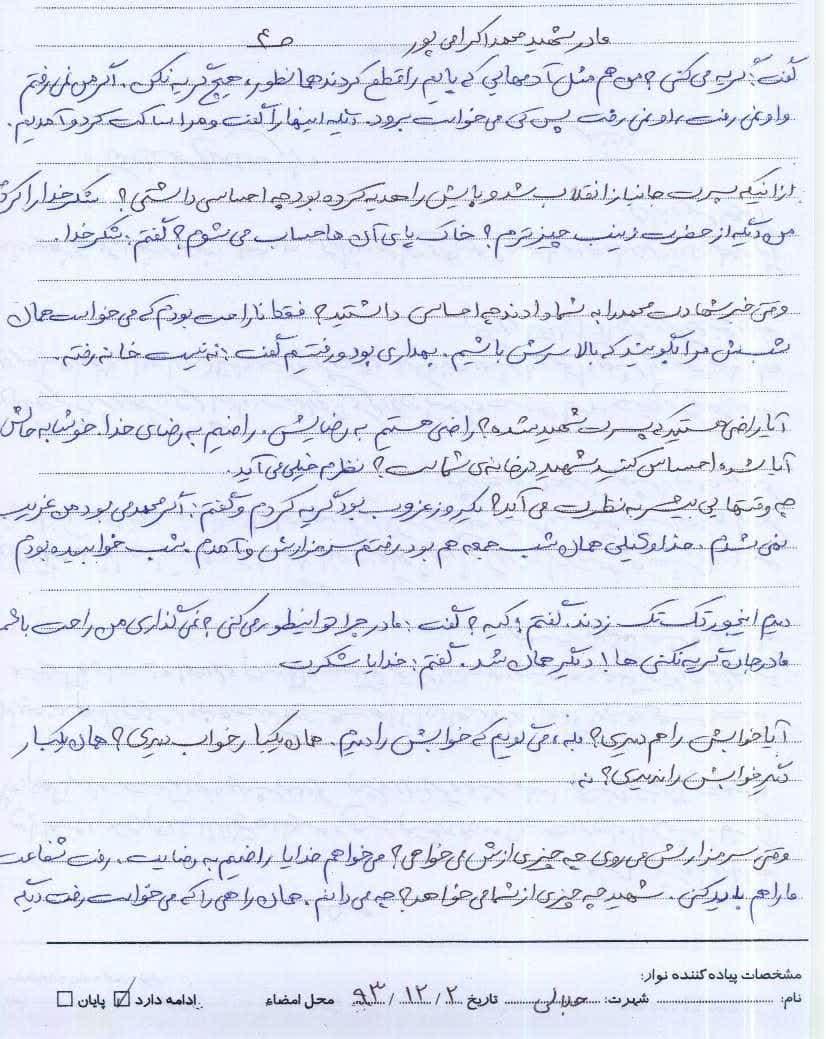 مادر شهید محمد اکرامی پور ص ۴
گفت: گریه می کنی؟ من هم مثل آدمهایی که پایم را قطع کردند همانطور، هیچ گریه نکن. اگر من نمی رفتم
و او نمی رفت، او نمی رفت پس کی می خواست برود. دیگه اینها را گفت و مرا ساکت کرد و آمدیم.
از اینکه پسرت جانباز انقلاب شد و پایش را هدیه کرده بود چه احساسی داشتی؟ شکر خدا را کردم
من دیگه از حضرت زینب چیزترم؟ خاک پای آن ها حساب می شوم؟ گفتم: شکر خدا.
وقتی خبر شهادت محمد را به شما دادند چه احساسی داشتید؟ فقط ناراحت بودم که می خواست همان
شبش مرا بگویند که بالا سرش باشیم. بهداری بود رفتیم گفت: نه نیست خانه رفته.
آیا راضی هستید که پسرت شهید شده؟ راضی هستم به رضایش. راضیم به رضای خدا. خوشا به حالش
آیا شده احساس کنید شهید در خانه ی شماست؟ نظرم خیلی می آید.
چه وقتهایی بیشتر به نظرت می آید؟ یکروز غروب بود گریه کردم و گفتم: اگر محمد می بود من غریب
نمی شدم. خداوکیلی همان شب جمعه هم بود رفتم سر مزارش و آمدم. شب خوابیده بودم
دیدم اینجور تک تک زدند. گفتم: کیه؟ گفت: مادر چرا اینطور می کنی؟ نمی گذاری من راحت باشم
مادر جان گریه نکنی ها! دیگر همان شد. گفتم: خدایا شکرت
آیا خوابش را هم دیدی؟ بله، می گویم که خوابش را دیدم. همان یکبار خواب دیدی؟ همان یکبار
دیگر خوابش را ندیدی؟ نه.
وقتی سر مزارش می روی چه چیزی ازش می خواهی؟ می خواهم خدایا راضیم به رضایت. رفت شفاعت
ما را هم باید کنی. شهید چه چیزی از شما می خواهد؟ چه می دانم. همان راهی را که می خواست رفت دیگه
مشخصات پیاده کننده نوار:
نام: شهرت: جلالی تاریخ ۹۳/۱۲/۲ محل امضاء ادامه دارد ☑ پایان ☐